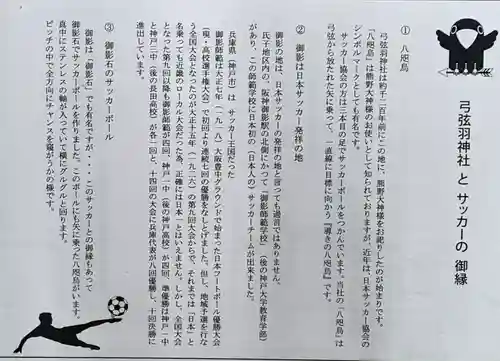 弓弦羽神社 と サッカーの 御縁
① 八咫烏
弓弦羽神社は約千二百年前にこの地に、熊野大神様をお祀りしたのが始まりです。
「八咫烏」は熊野大神様のお使いとして知られておりますが、近年は、日本サッカー協会の
シンボルマークとしても有名です。
サッカー協会の方は三本目の足でサッカーボールをつかんでいます。当社の「八咫烏」は
弓弦から放たれた矢に乗って、一直線に目標に向かう『導きの八咫烏』です。
② 御影は日本サッカー発祥の地
御影の地は、日本サッカーの発祥の地と言っても過言ではありません。
氏子地区内の、阪神御影駅の北側にかつて『御影師範学校』（後の神戸大学教育学部）
があり、この師範学校に日本初の（日本人の）サッカーチームが出来ました。
兵庫県（神戸市）は サッカー王国だった
御影師範は大正七年（一九一八）大阪豊中グラウンドで始まった日本フートボール優勝大会
（現・高校選手権大会）で初回より連続七回の優勝をなしとげました。但し、地域予選を行な
う全国大会となったのが大正十五年（一九二六）の第九回大会からで、それまでは「日本」と
名乗っても近畿のローカル大会だった為、正確には日本一とはいえません。しかし、全国大会
となった第九回以降も御影師範が四回、神戸一中（後の神戸高校）が四回、準優勝は神戸一中
と神戸三中（後の長田高校）が各二回と、十四回の大会に兵庫代表が八回優勝し、十回決勝に
進出しています。
③ 御影石のサッカーボール
御影は「御影石」でも有名ですが・・・このサッカーとの御縁もあって
御影石でサッカーボールを作りました。このボールにも矢に乗った八咫烏がいます。
真中にステンレスの軸が入っていて横にグルグルと回ります。
ピッチの中で全方向にチャンスを窺がうかの様です。